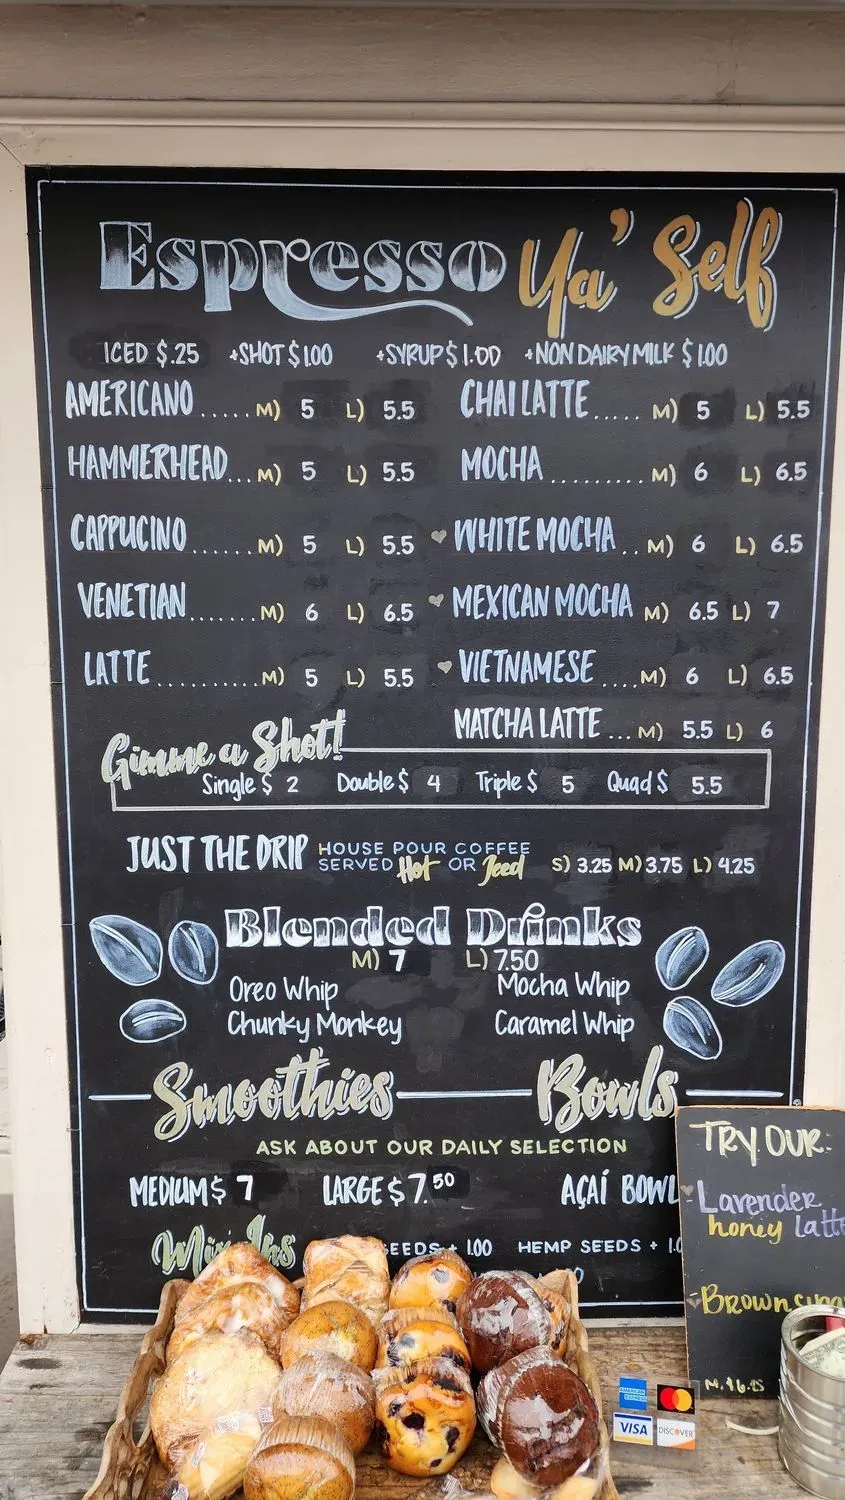 Espresso Ya' Self
ICED $.25 +SHOT $1.00 +SYRUP $1.00 +NON DAIRY MILK $1.00
AMERICANO ..... M) 5 L) 5.5
HAMMERHEAD ... M) 5 L) 5.5
CAPPUCINO ...... M) 5 L) 5.5
VENETIAN ....... M) 6 L) 6.5
LATTE .......... M) 5 L) 5.5
CHAI LATTE ..... M) 5 L) 5.5
MOCHA ......... M) 6 L) 6.5
WHITE MOCHA .. M) 6 L) 6.5
MEXICAN MOCHA M) 6.5 L) 7
VIETNAMESE .... M) 6 L) 6.5
MATCHA LATTE ... M) 5.5 L) 6
Gimme a Shot!
Single $ 2 Double $ 4 Triple $ 5 Quad $ 5.5
JUST THE DRIP HOUSE POUR COFFEE
SERVED Hot OR Iced S) 3.25 M) 3.75 L) 4.25
Blended Drinks
M) 7 L) 7.50
Oreo Whip Mocha Whip
Chunky Monkey Caramel Whip
Smoothies Bowls
ASK ABOUT OUR DAILY SELECTION
MEDIUM $ 7 LARGE $ 7.50 AÇAÍ BOWL
Mix Ins SEEDS + 1.00 HEMP SEEDS + 1.0
TRY OUR:
Lavender
honey latte
Brown sugar
M. $6.25
AMERICAN EXPRESS
VISA DISCOVER